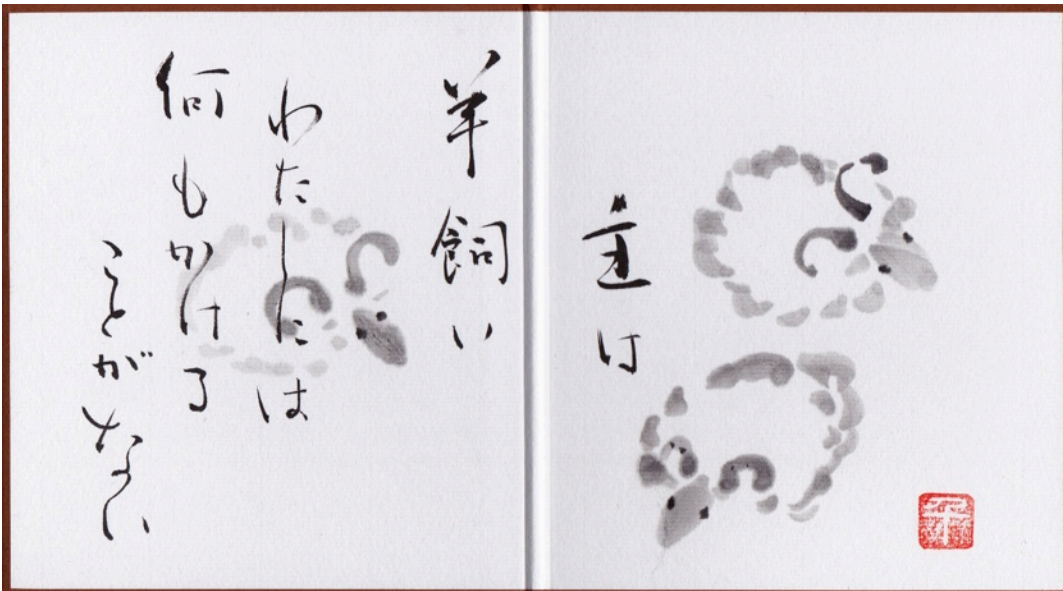 主は
羊飼い
わたしには
何もかける
ことがない